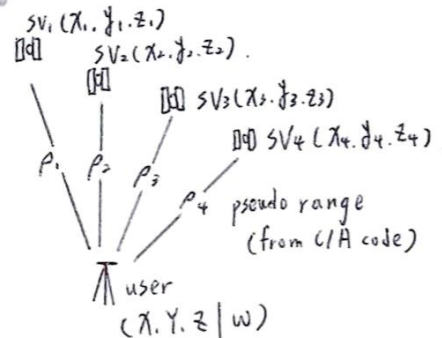 SV₁ (X₁. Y₁. Z₁)
SV₂ (X₂. Y₂. Z₂).
SV₃ (X₃. Y₃. Z₃)
SV₄ (X₄. Y₄. Z₄)
ρ₁ ρ₂ ρ₃ ρ₄
pseudo range
(from C/A code)
user
(X. Y. Z | W)